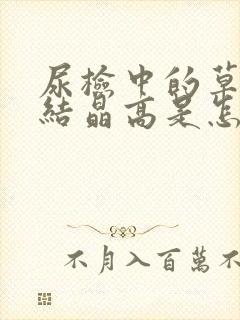 尿檢中的草
結晶高是怎
不月入百萬不